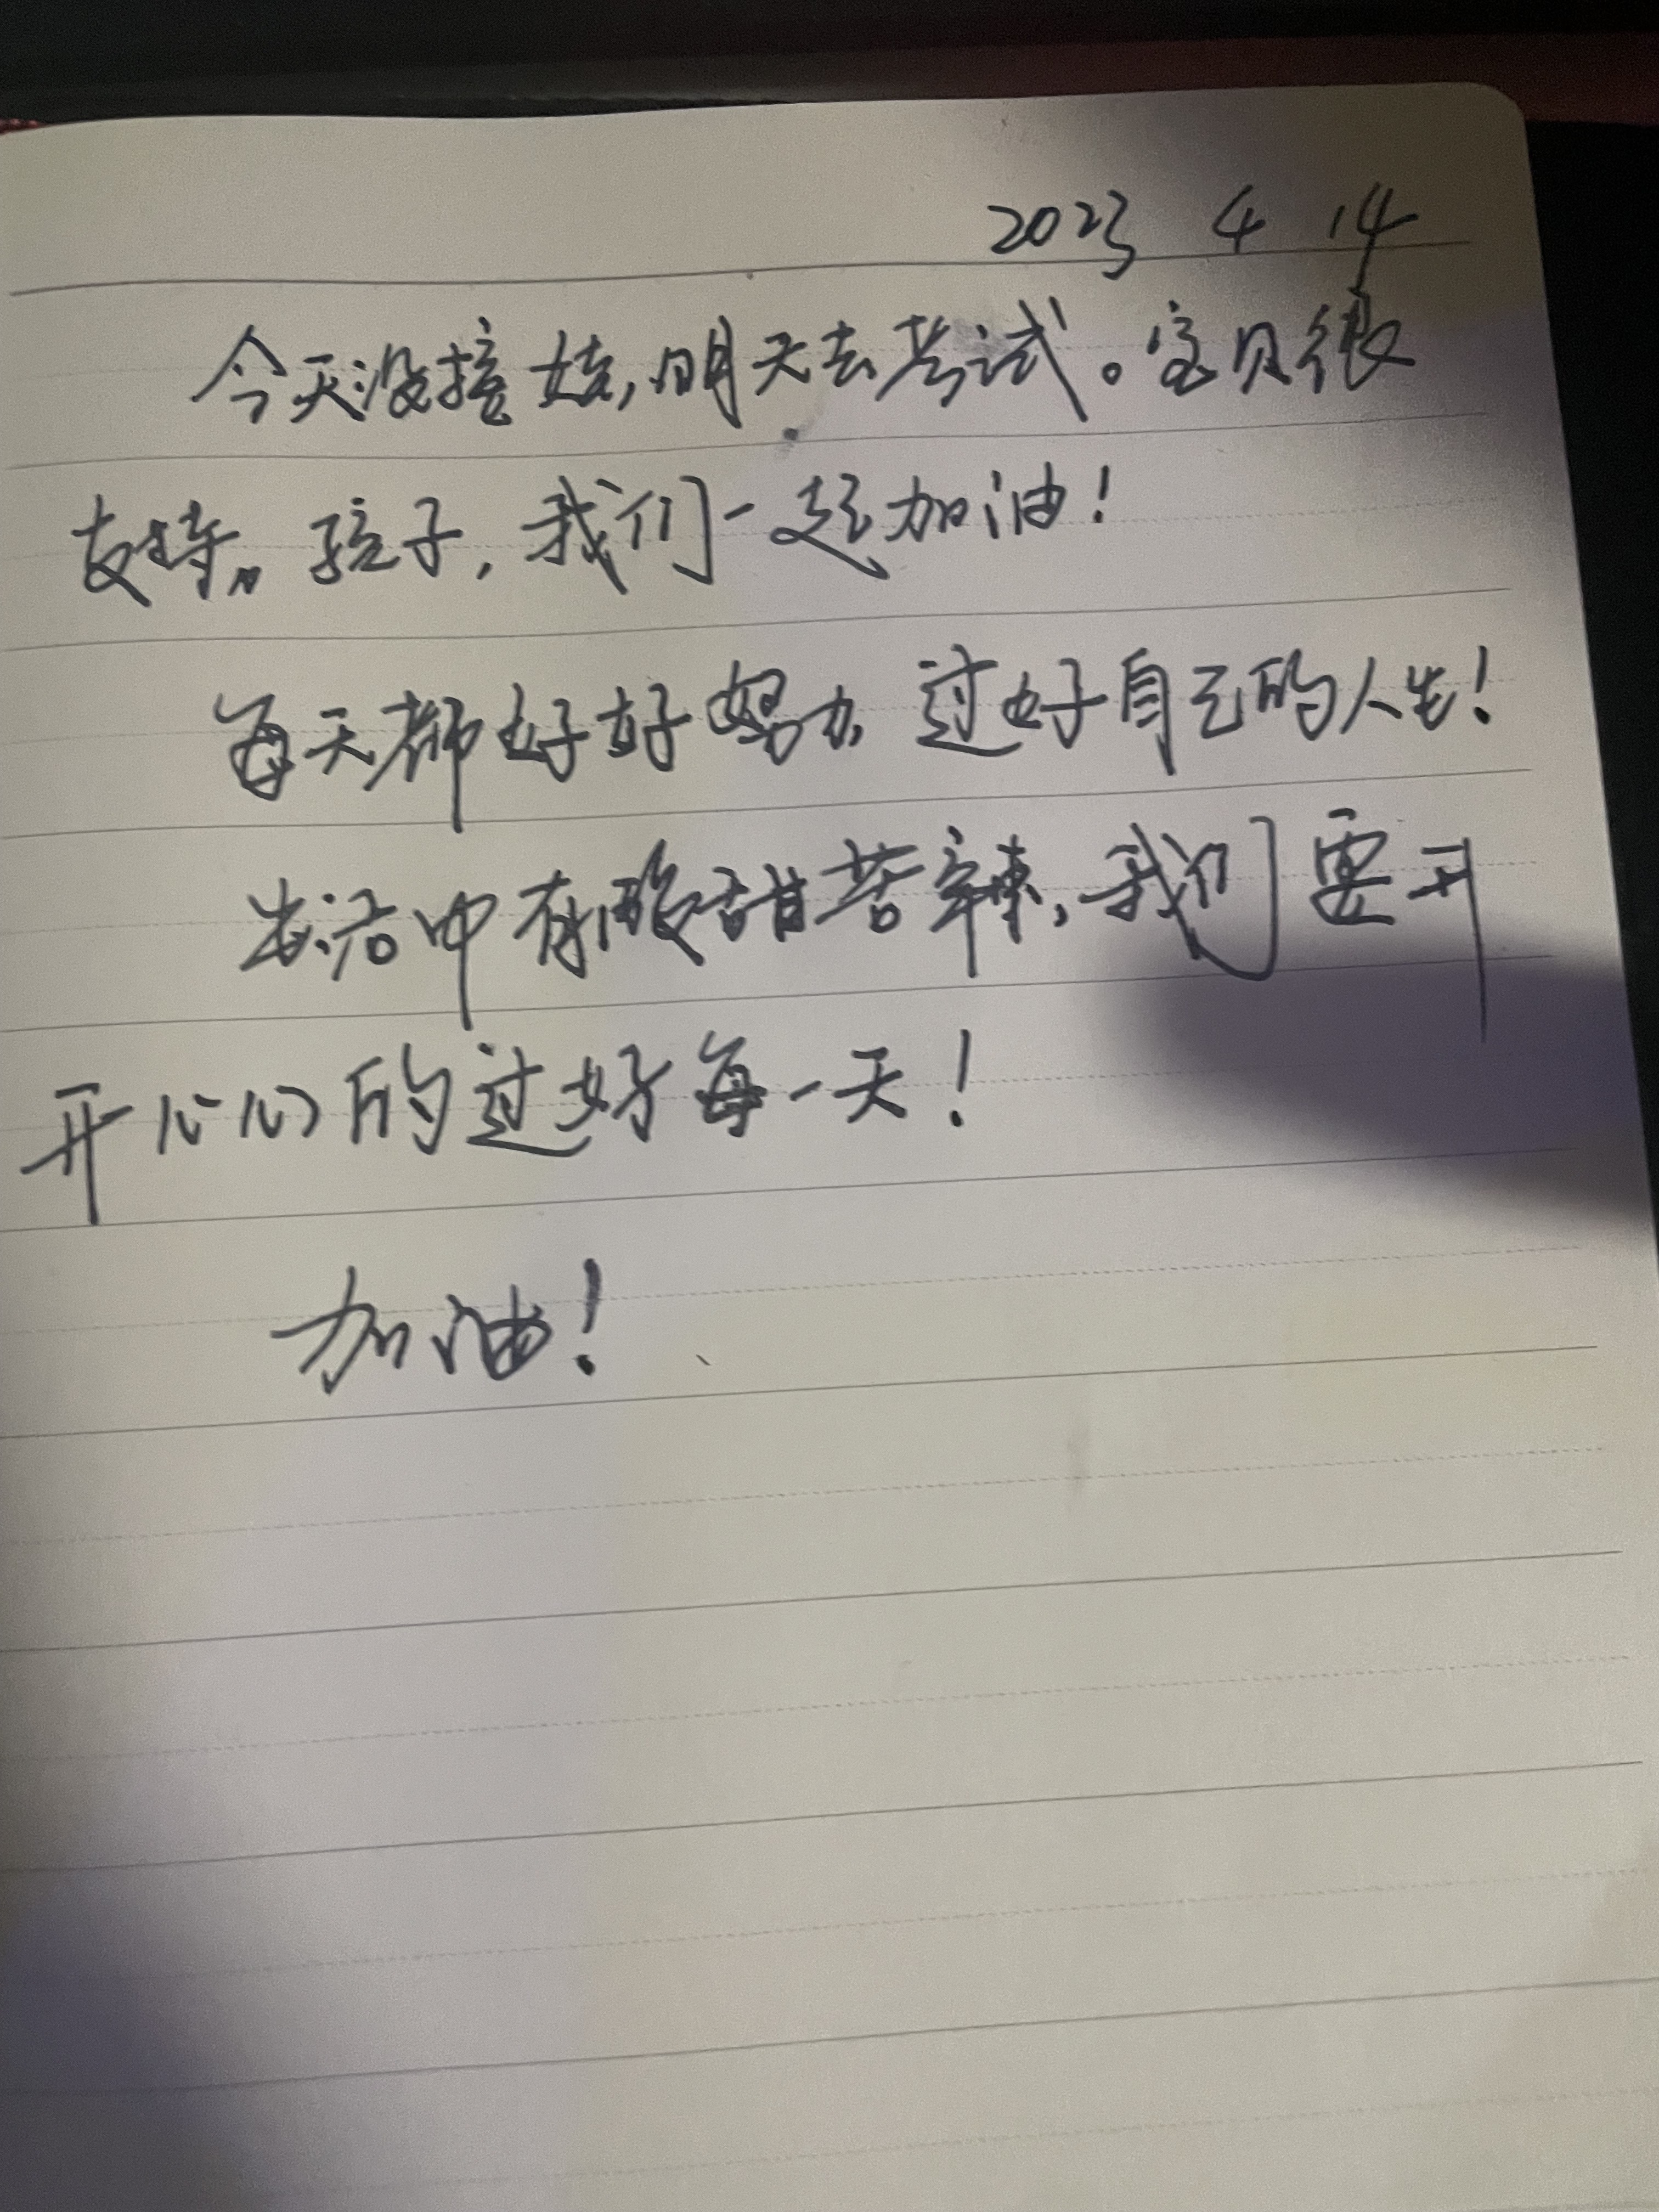 2023 4 14
今天没接娃,明天去考试。宝贝很
支持。孩子,我们一起加油!
每天都好好努力,过好自己的人生!
生活中有酸甜苦辛辣,我们要开
开心心的过好每一天!
加油!